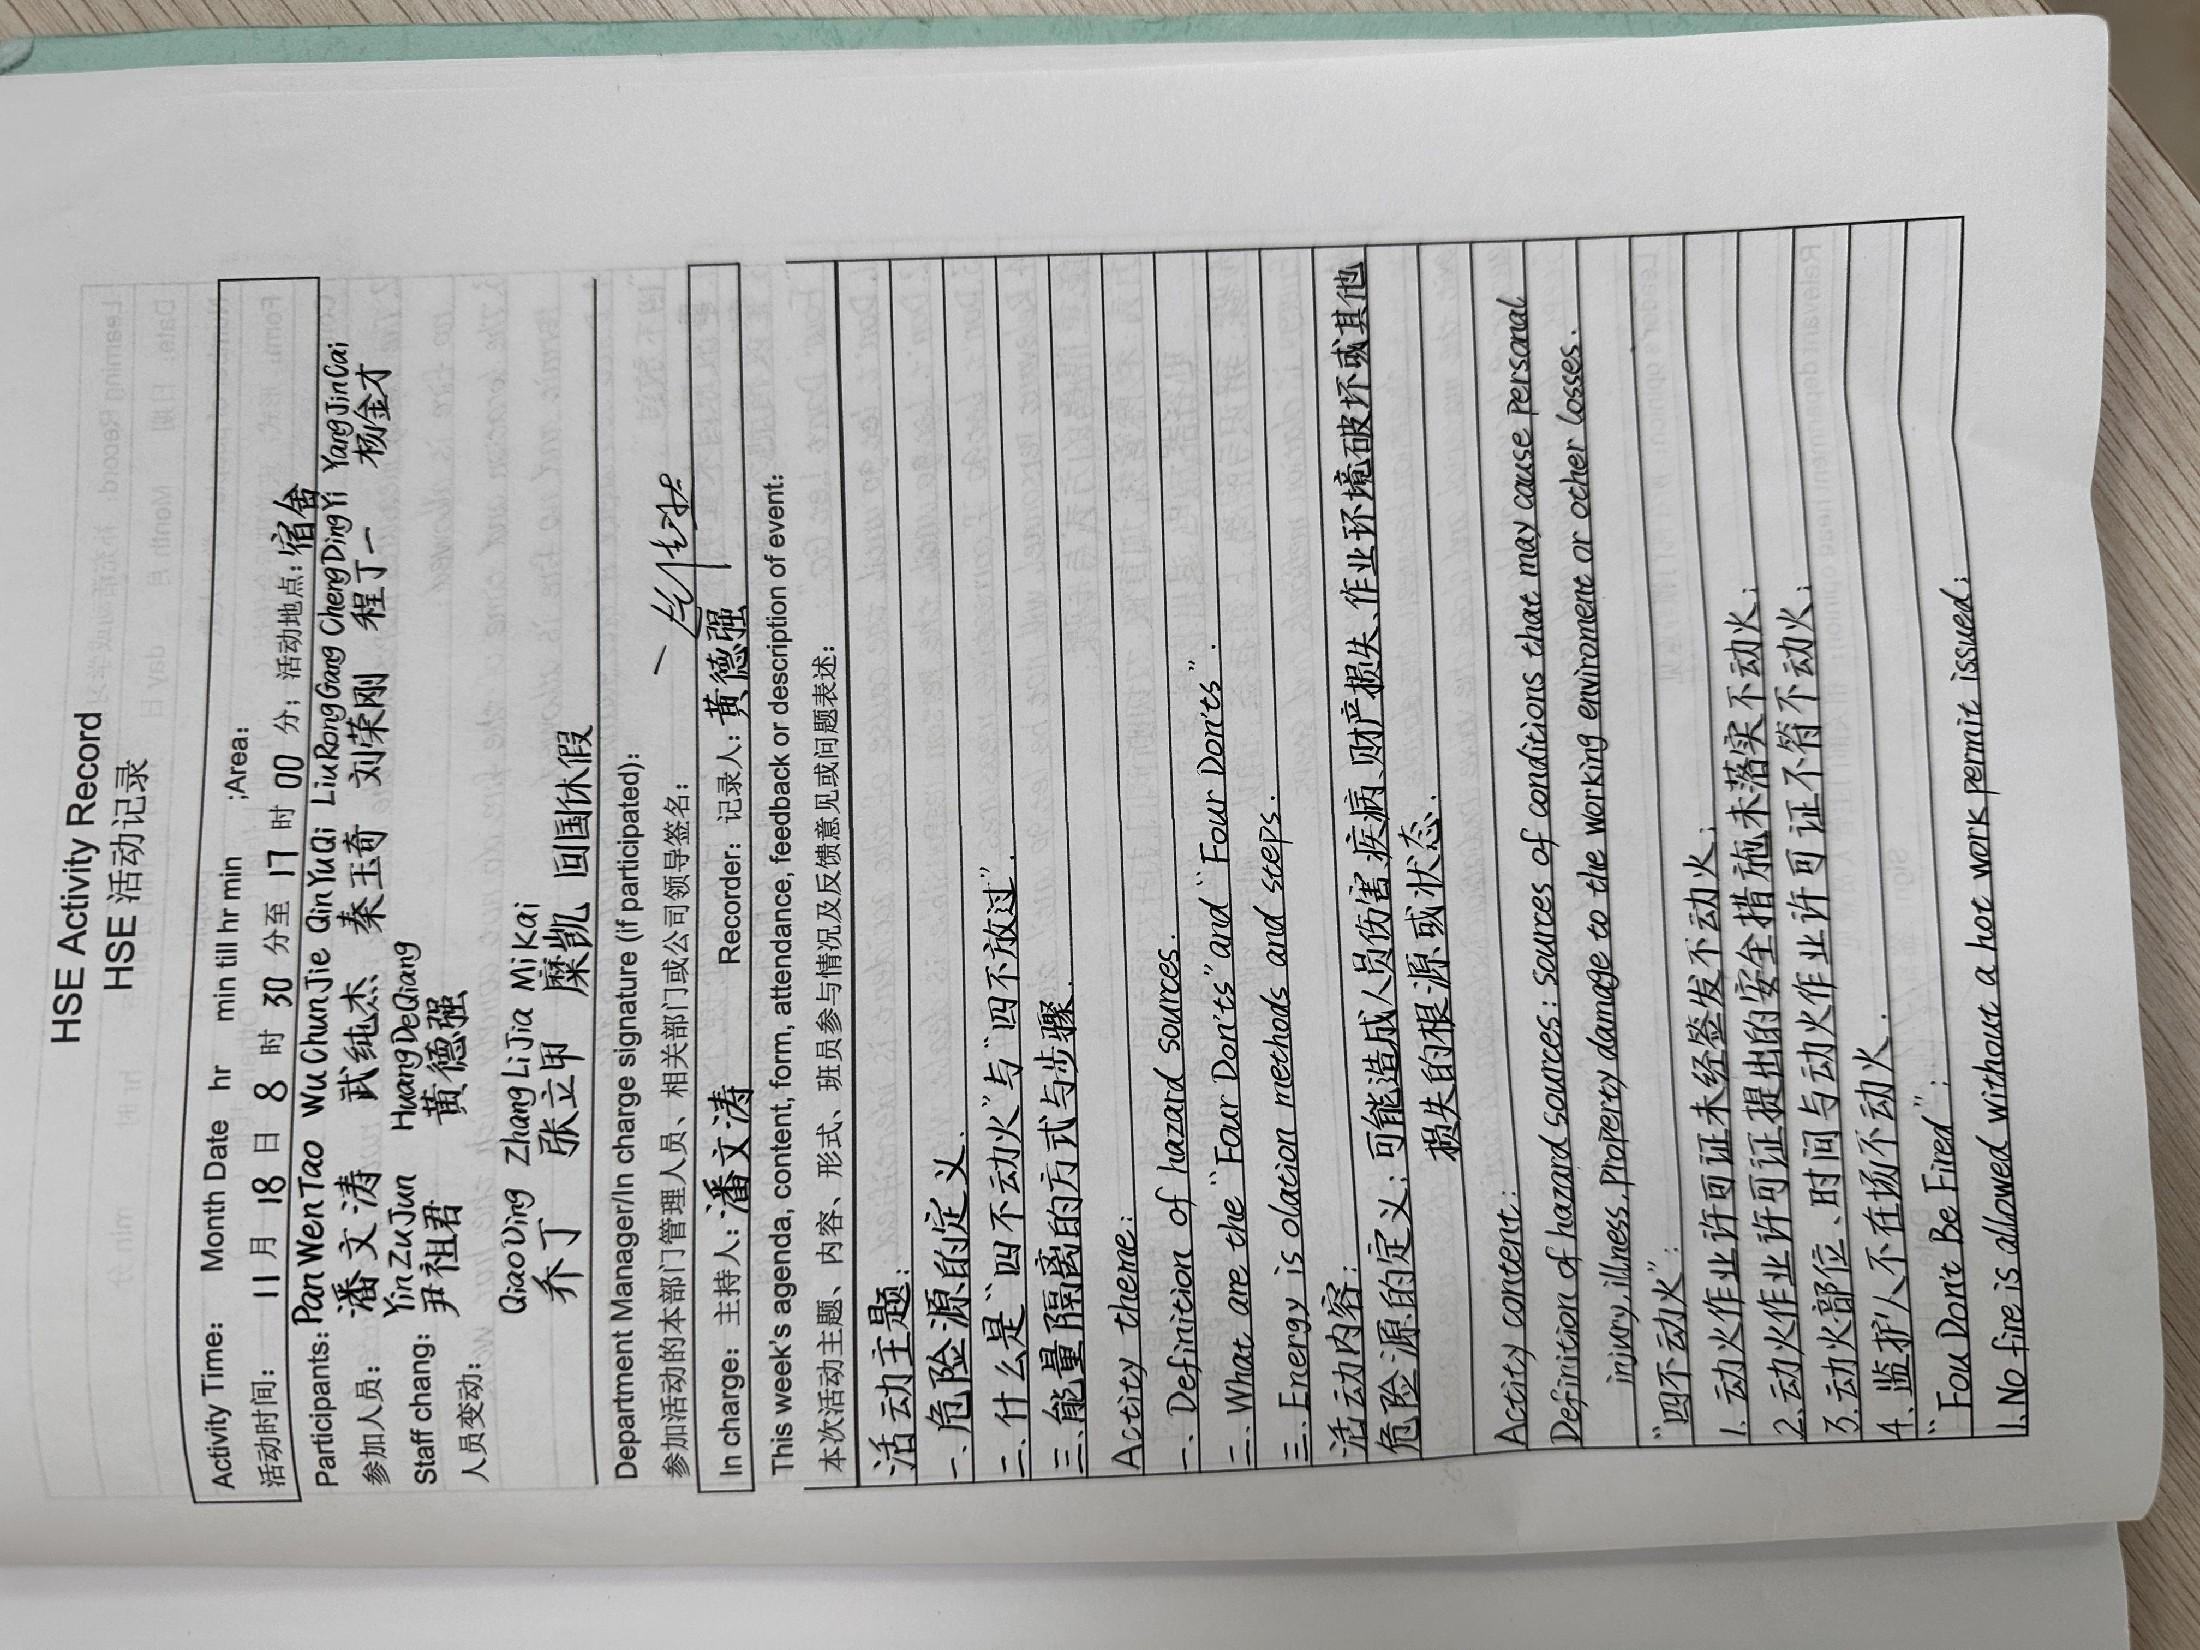 HSE Activity Record
HSE 活动记录
Activity Time: Month Date hr min till hr min ;Area:
活动时间: 11 月 18 日 8 时 30 分至 17 时 00 分; 活动地点: 宿舍
Participants: PanWenTao WuChunJie QinYuQi LiuRongGang ChengDingYi YangJinCai
参加人员: 潘文涛 武纯杰 秦玉奇 刘荣刚 程丁一 杨金才
YinZuJun HuangDeQiang
Staff chang: 尹祖君 黄德强
人员变动:
QiaoDing ZhangLiJia MiKai
乔丁 张立甲 糜凯 回国休假
Department Manager/In charge signature (if participated):
参加活动的本部门管理人员、相关部门或公司领导签名:
In charge: 主持人: 潘文涛 Recorder: 记录人: 黄德强
This week's agenda, content, form, attendance, feedback or description of event:
本次活动主题、内容、形式、班员参与情况及反馈意见或问题表述:
活动主题:
一、危险源的定义.
二、什么是“四不动火”与“四不放过”.
三、能量隔离的方式与步骤.
Actity theme:
一、Definition of hazard sources.
二、What are the “Four Don'ts” and “Four Don'ts”.
三、Energy is olation methods and steps.
活动内容:
危险源的定义: 可能造成人员伤害、疾病、财产损失、作业环境破坏或其他
损失的根源或状态.
Actity content:
Definition of hazard sources: Sources of conditions that may cause personal
injury, illness, Property damage to the working enviroment or other losses.
“四不动火”:
1. 动火作业许可证未经签发不动火;
2. 动火作业许可证提出的安全措施未落实不动火;
3. 动火部位、时间与动火作业许可证不符不动火;
4. 监护人不在场不动火.
“Fou Don't Be Fired”:
1. No fire is allowed without a hot work permit issued;